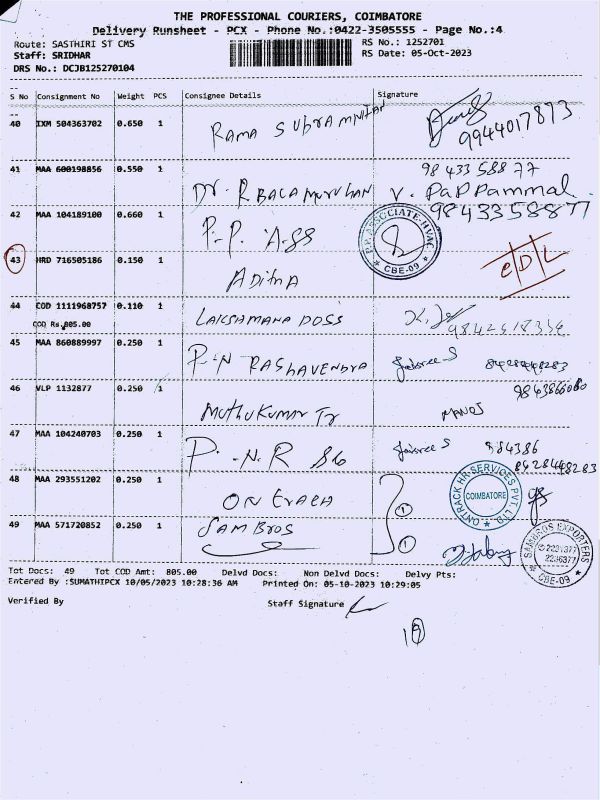 THE PROFESSIONAL COURIERS, COIMBATORE
Delivery Runsheet - PCX - Phone No.:0422-3505555 - Page No.:4
Route: SASTHIRI ST CMS
RS No.: 1252701
Staff: SRIDHAR
RS Date: 05-Oct-2023
DRS No.: DCJB125270104
S No Consignment No Weight PCS Consignee Details Signature
40 IXM 504363702 0.650 1 RAMA SUBRAMNIAN 9944017873
41 MAA 600198856 0.550 1 Dr. R BALAMURUHAN 98 433 588 77
V. PaPPammal
42 MAA 104189100 0.660 1 P.P. Ass 98433 58877
P.P. ASSOCIATE-HVAC CBE-09
43 HRD 716505186 0.150 1 ADITHA
44 COD 1111968757 0.110 1 LAKSHAMANA DOSS
COD Rs.805.00
45 MAA 860889997 0.250 1 P.N RAGHAVENDRA
46 VLP 1132877 0.250 1 MUTHUKUMAR Tr MANOJ
47 MAA 104240703 0.250 1 P.N.R 984386
8428448283
48 MAA 293551202 0.250 1
ONTRACK HR SERVICES PVT. LTD COIMBATORE
49 MAA 571720852 0.250 1 SAMBROS
SAMBROS EXPORTERS CBE-09
Tot Docs: 49 Tot COD Amt: 805.00 Delvd Docs: Non Delvd Docs: Delvy Pts:
Entered By :SUMATHIPCX 10/05/2023 10:28:36 AM Printed On: 05-10-2023 10:29:05
Verified By Staff Signature